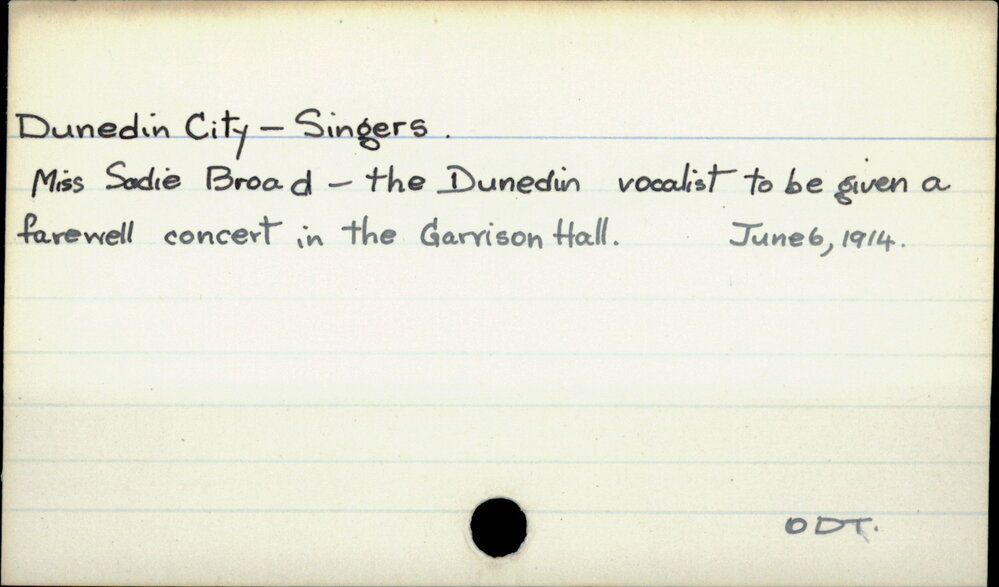 Dunedin City – Singers.
Miss Sadie Broad – the Dunedin vocalist to be given a
farewell concert in the Garrison Hall. June 6, 1914.
ODT.